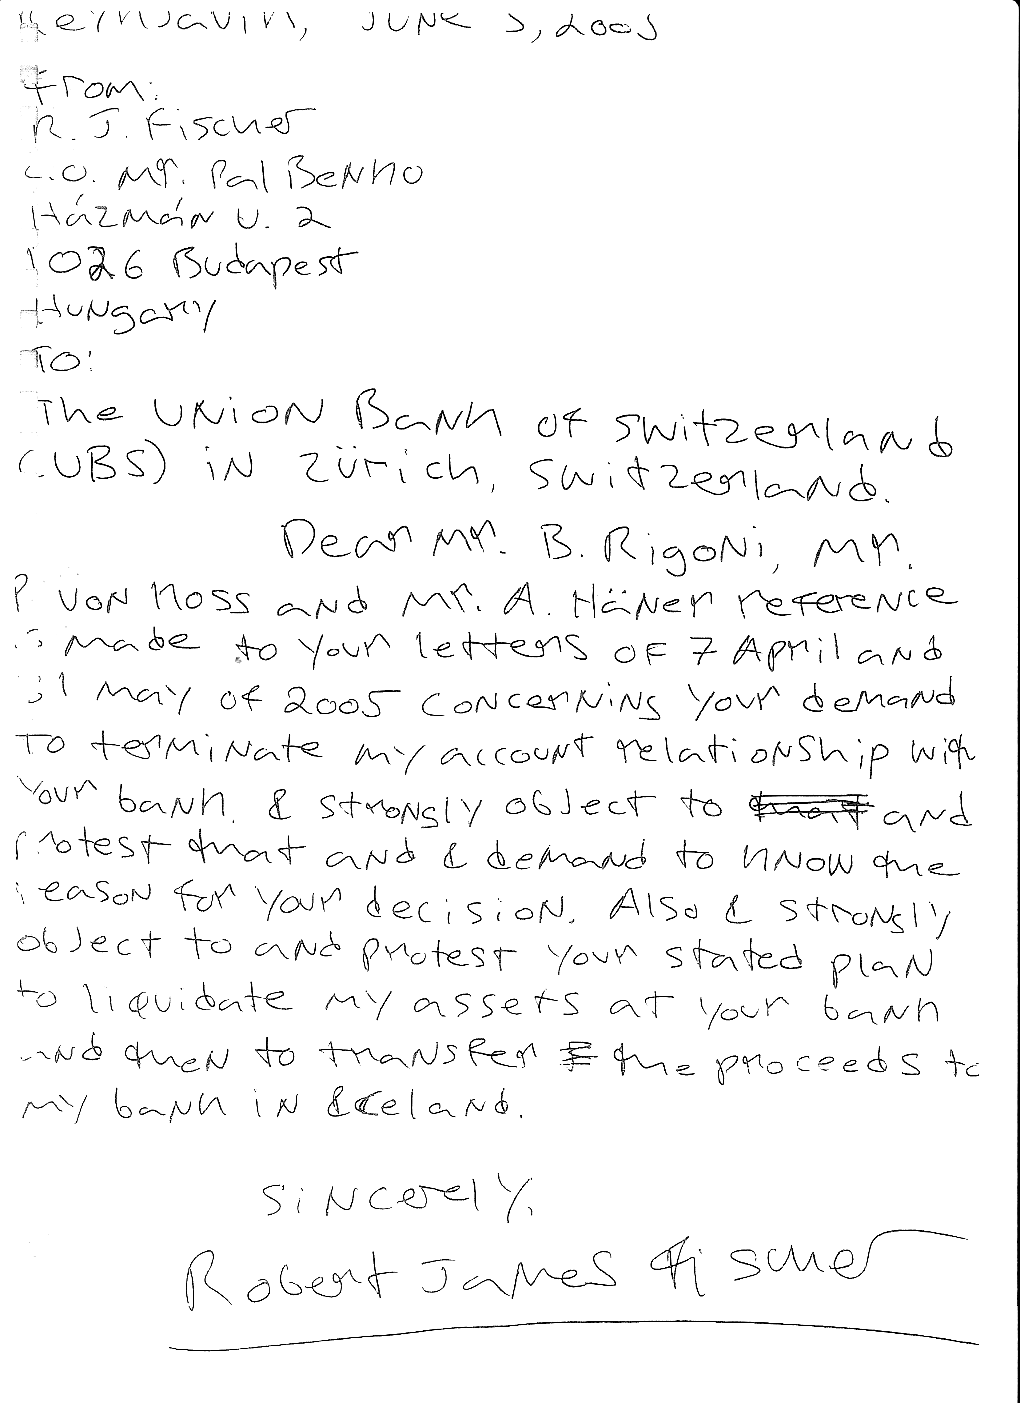 Reykjavik, June 3, 2005
From:
R. J. Fischer
C.O. Mr. Pal Benko
Házmán U. 2
1026 Budapest
Hungary
To:
The Union Bank of Switzerland
(UBS) in Zürich, Switzerland.
Dear Mr. B. Rigoni, Mr.
P von Moss and Mr. A. Häner reference
is made to your letters of 7 April and
31 May of 2005 concerning your demand
to terminate my account relationship with
your bank. I strongly object to and
protest that and I demand to know the
reason for your decision. Also I strongly
object to and protest your stated plan
to liquidate my assets at your bank
and then to transfer the proceeds to
my bank in Iceland.
Sincerely,
Robert James Fischer